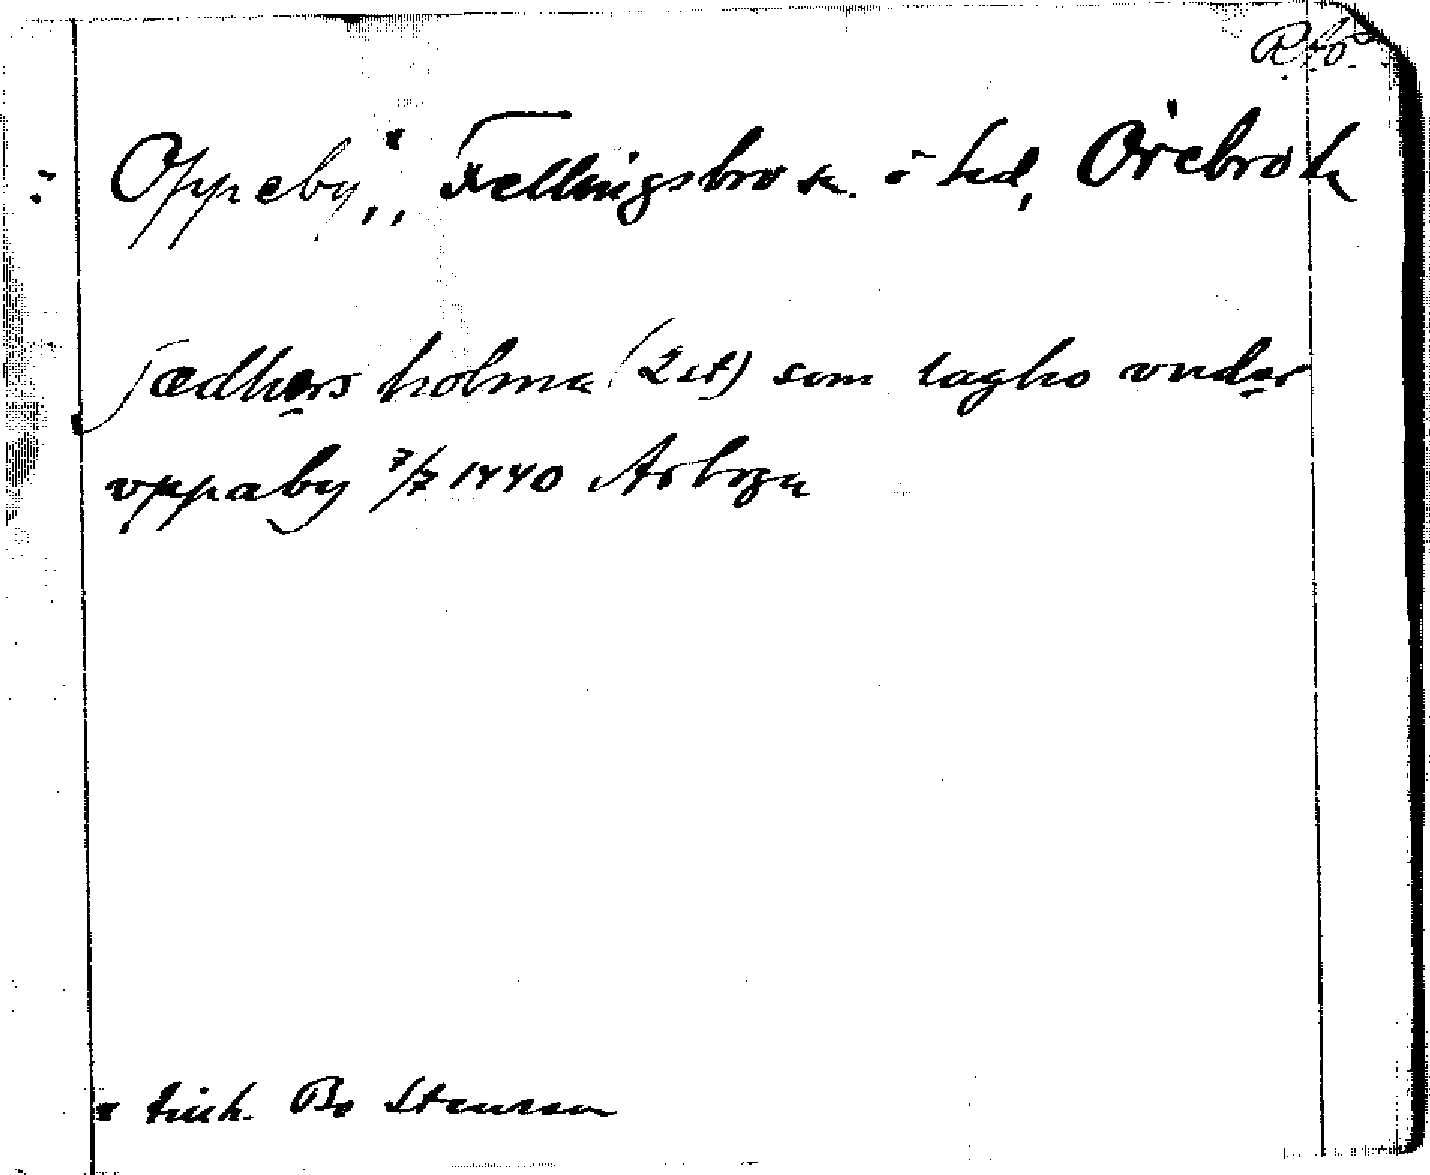 Oppeby, Fellingsbro sn. o. hd, Örebro l.
jædhers holma (2 st) som lagho vnder
vppaby 7/7 1440 Arboga
Bo Stensson